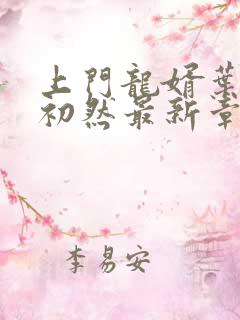 上門龍婿葉
初然最新章
李易安